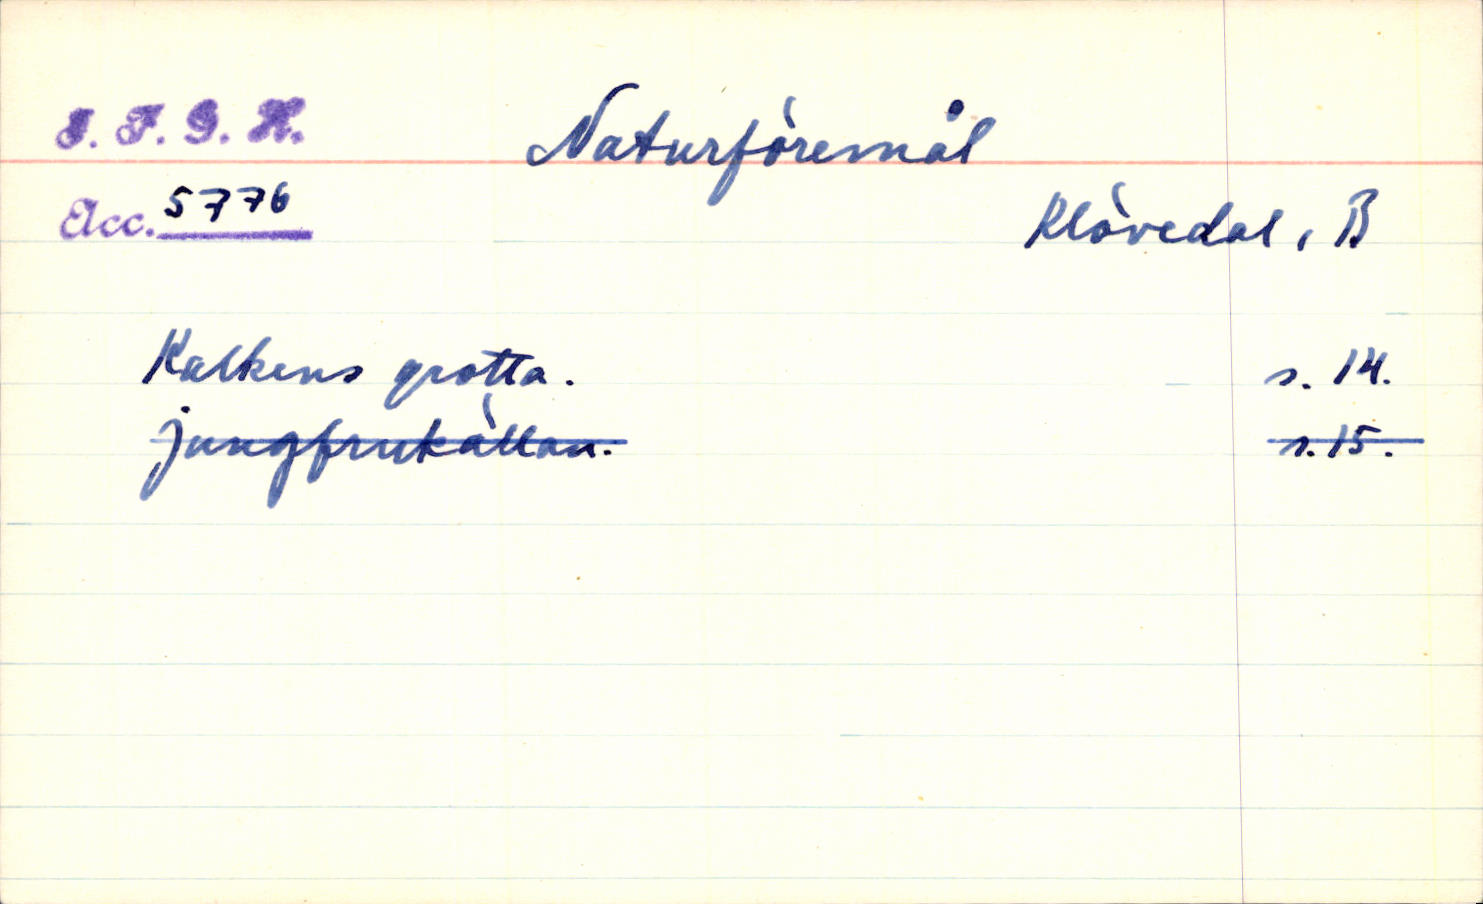 I. F. G. H.
Naturföremål
Acc. 5776
Klövedal, B
Kalkens grotta. s. 14.
jungfrukällan. s. 15.